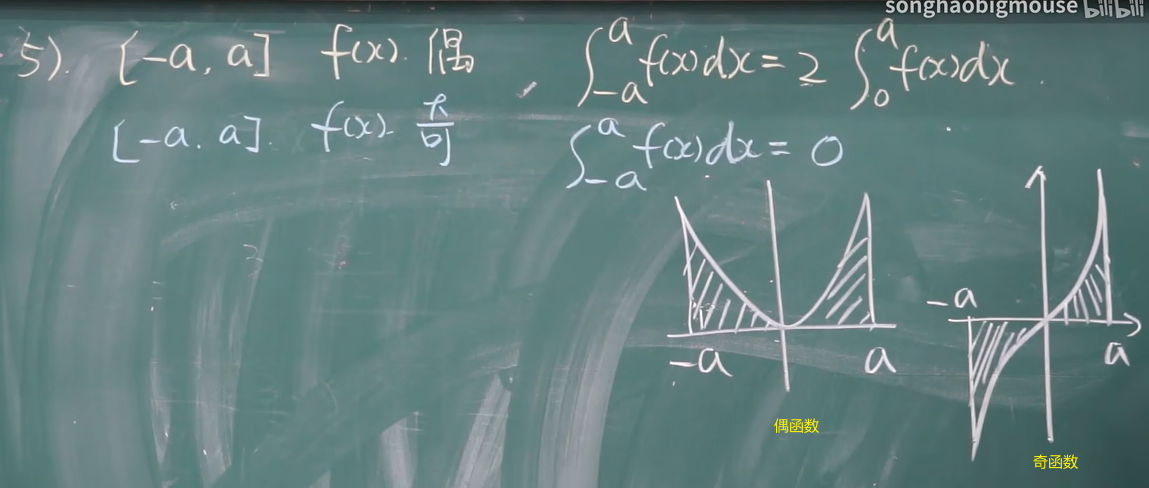 songhaobigmouse bilibili
5). [-a, a] f(x). 偶 ∫_{-a}^{a} f(x)dx = 2 ∫_{0}^{a} f(x)dx.
[-a, a]. f(x). 奇 ∫_{-a}^{a} f(x)dx = 0
-a a
-a a
偶函数
奇函数